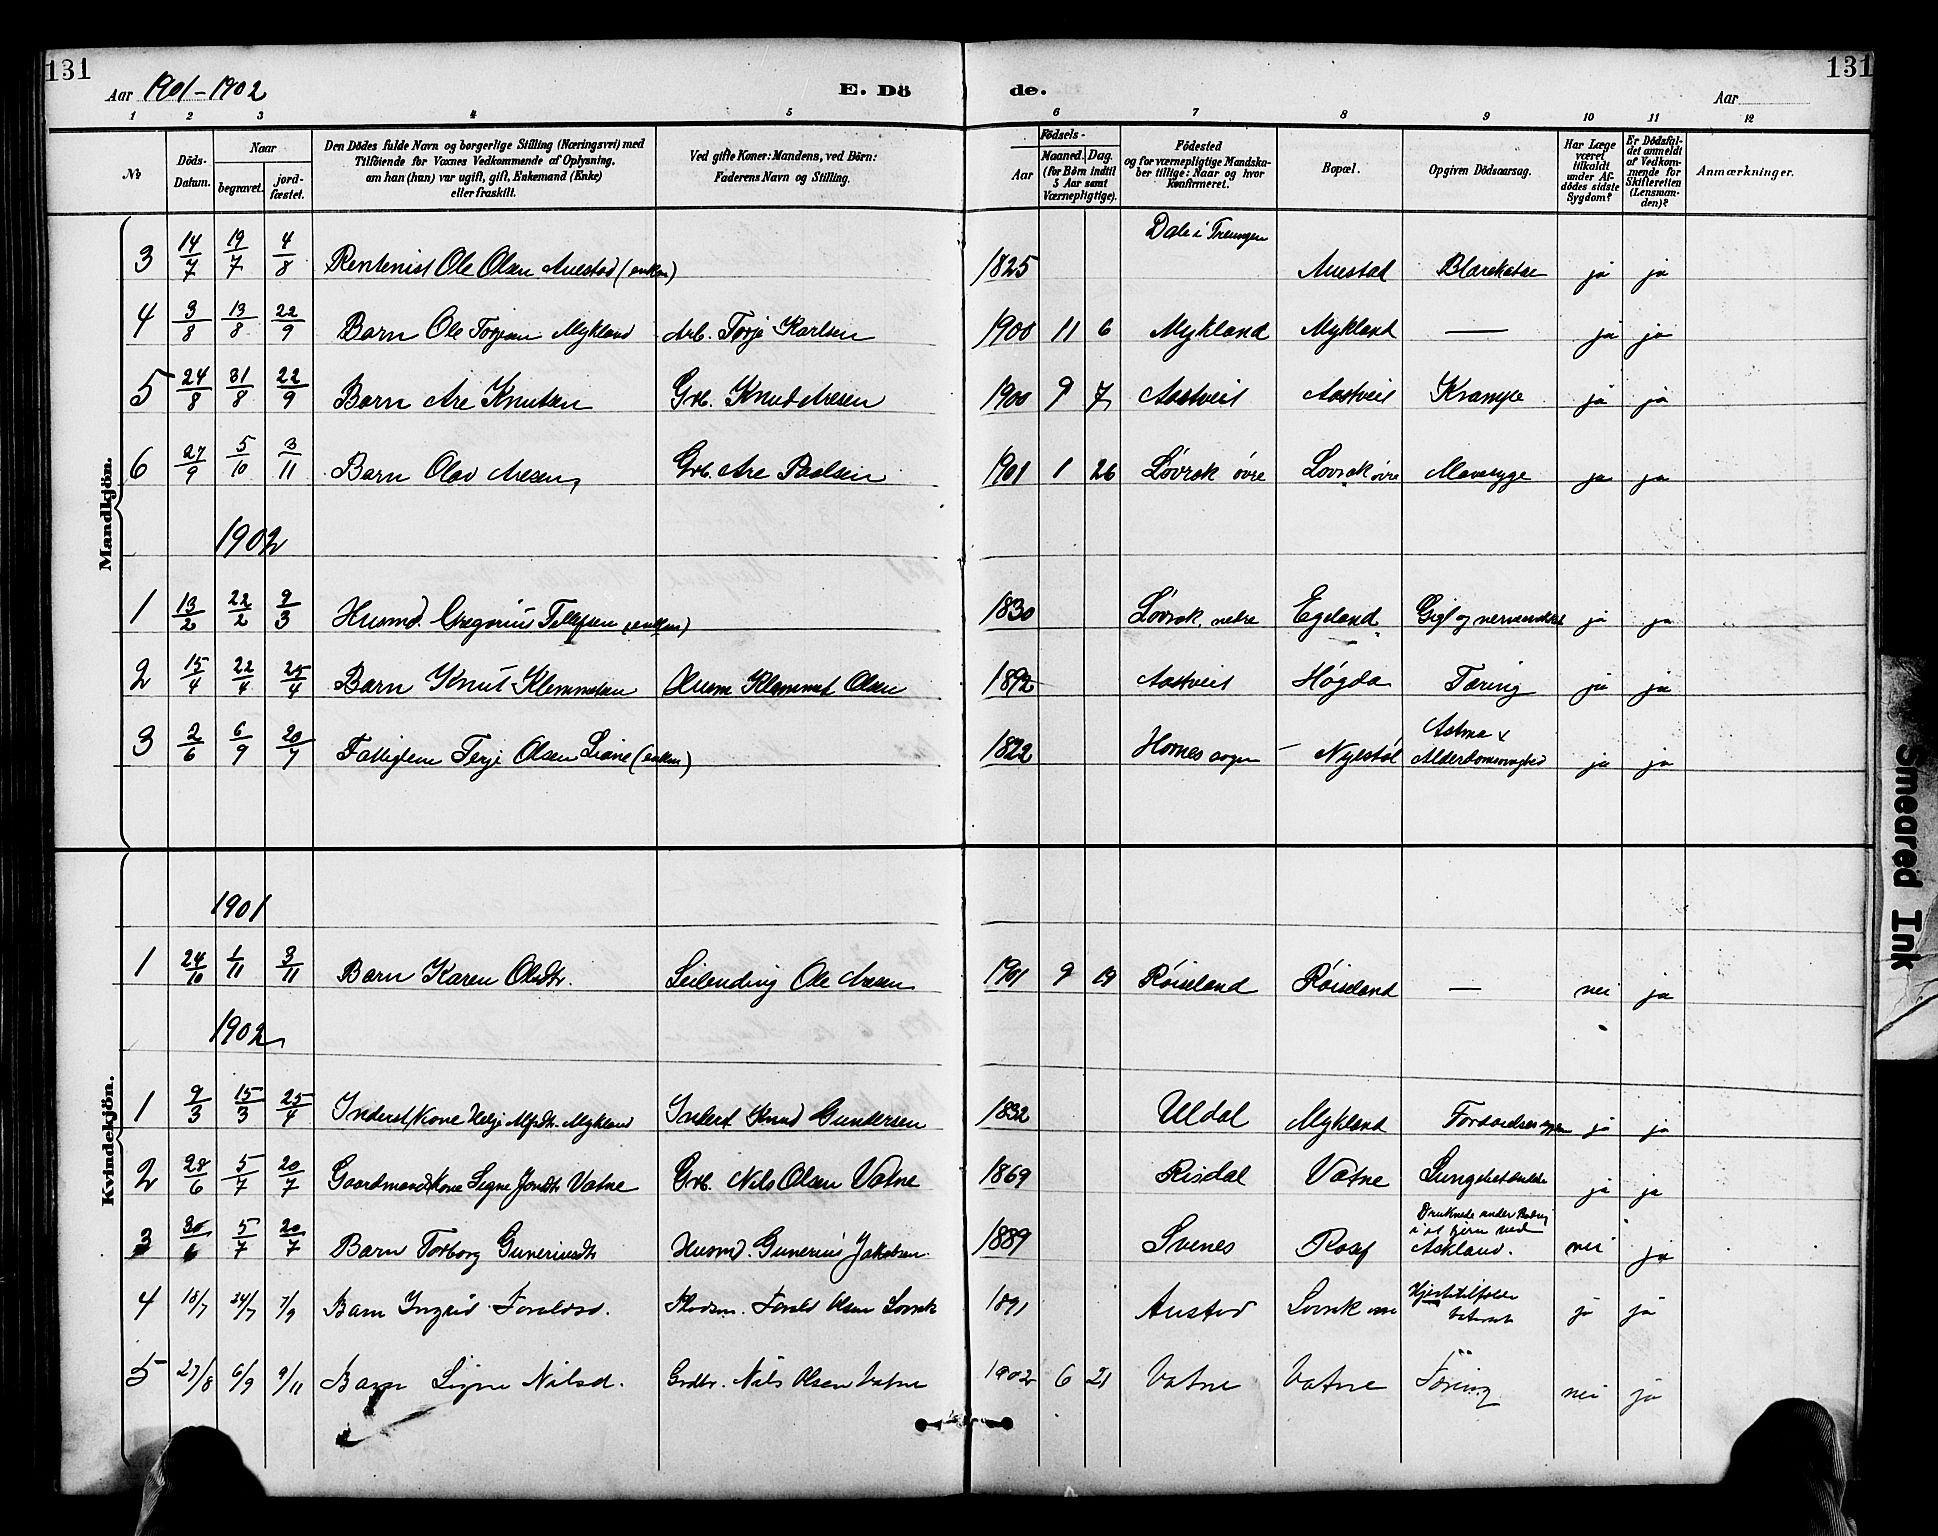 131
131
Aar 1901-1902
E. Dö
de.
Aar
1 2 3 4 5 6 7 8 9 10 11 12
No
Döds-Datum.
Naar
begravet.
jord-fæstet.
Den Dödes fulde Navn og borgerlige Stilling (Næringsvei) med
Tilföiende for Voxnes Vedkommende af Oplysning,
om han (hun) var ugift, gift, Enkemand (Enke)
eller fraskilt.
Ved gifte Koner: Mandens, ved Börn:
Faderens Navn og Stilling.
Födsels-
Aar
Maaned. Dag.
(for Börn indtil
5 Aar samt
Værnepligtige).
Födested
og for værnepligtige Mandska-
ber tillige: Naar og hvor
konfirmeret.
Bopæl.
Opgiven Dödsaarsag.
Har Læge
været
tilkaldt
under Af-
dödes sidste
Sygdom?
Er Dödsfal-
det anmeldt
af Vedkom-
mende for
Skifteretten
(Lensman-
den)?
Anmærkninger.
Mandkjön.
3 14/7 19/7 4/8 Rentenist Ole Olsen Auestad (enkem) 1825 Dale i Auestad Blærekatar ja ja
4 3/8 13/8 22/9 Barn Ole Torjesen Mykland Arb. Torje Karlsen 1900 11 6 Mykland Mykland — ja ja
5 24/8 31/8 22/9 Barn Are Knutsen Grb. Knud Aresen 1900 9 7 Aastveit Aastveit Krampe ja ja
6 27/9 5/10 3/11 Barn Olav Aresen Grb. Are Paalsen 1901 1 26 Løvrak øvre Lovrak øvre Mavesyge ja ja
1902
1 13/2 22/2 9/3 Husmd. Gregorius Tellefsen (enkem) 1830 Løvrak, nedre Egeland Gigt og ja ja
2 15/4 22/4 25/4 Barn Knut Klemmetsen Husm Klemmet Olsen 1892 Aastveit Høgda Tæring ja ja
3 2/6 6/9 20/7 Fattiglem Terje Olsen (enkem) 1822 Hornes sogn — Nylestøl Astma & Alderdomssvaghed ja ja
Kvindekjön.
1901
1 24/10 1/11 3/11 Barn Karen Olsdtr. Leilending Ole Aresen 1901 9 19 Røiseland Røiseland — nei ja
1902
1 9/3 15/3 25/4 Inderst Kone Helje Mykland Inderst Knud Gundersen 1832 Uldal Mykland ja ja
2 28/6 5/7 20/7 Gaardmandskone Signe Jonsdtr. Vatne Grb. Nils Olsen Vatne 1869 Risdal Vatne Lungebetændelse ja ja
3 30/6 5/7 20/7 Barn Torborg Guneriusdtr Husmd. Gunerius Jakobsen 1889 Svenes Druknede under Badning
i et tjern ved
Askland. nei ja
4 18/7 24/7 7/9 Barn Ingrid Toraldsd. Plodsm. Torald Olsen Lovrak 1891 Austad Lovrak øvre Hjertetilfælde ja ja
5 27/8 6/9 9/11 Barn Signe Nilsd. Grdbr. Nils Olsen Vatne 1902 6 21 Vatne Vatne Tæring nei ja
Smeared Ink